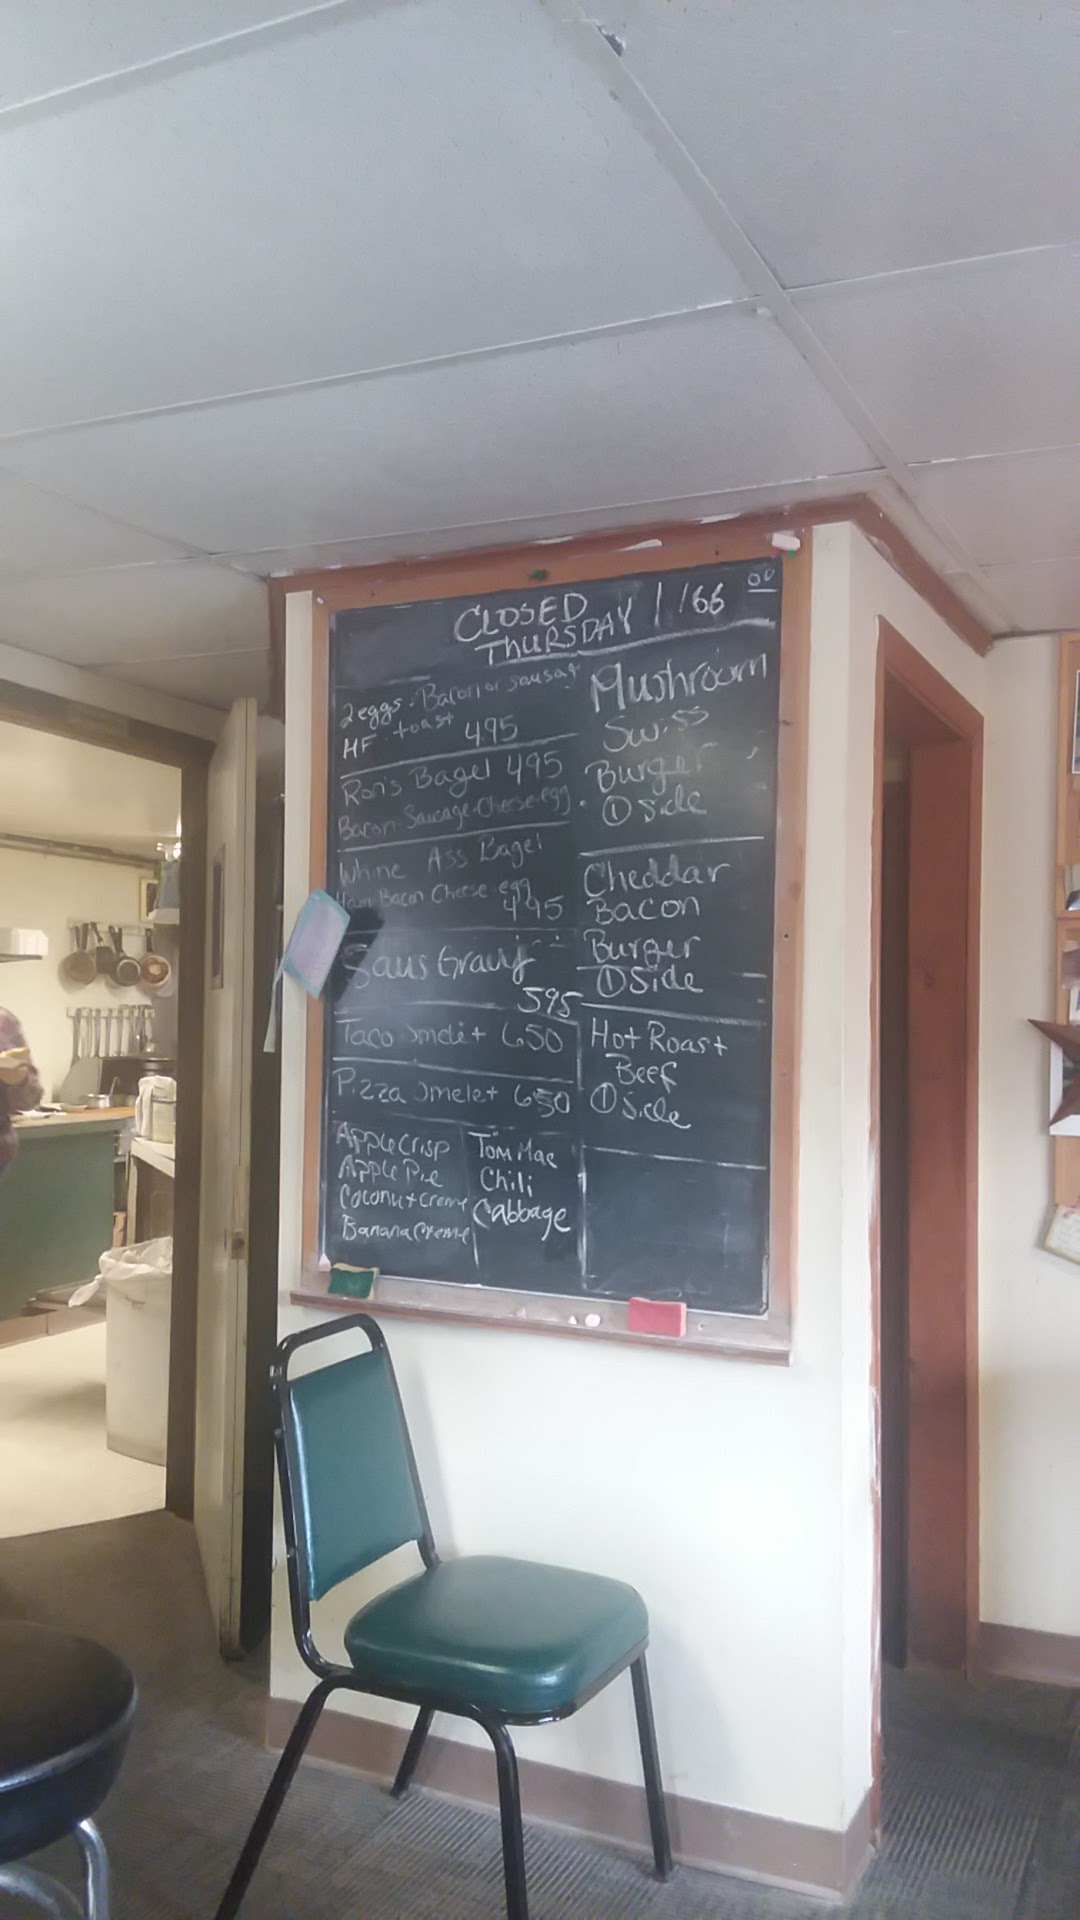 CLOSED
THURSDAY 1/166 00
2eggs. Bacon or sausag
HF. toast 4.95
Ron's Bagel 495
Bacon. Sausage. Cheese. egg.
Whine Ass Bagel
Ham Bacon Cheese egg
495
Saus Gravy
595
Taco Omelet 650
Pizza Omelet 650
Apple Crisp
Apple Pie
Coconut creme
Banana Creme
Tom Mac
Chili
Cabbage
Mushroom
Swiss
Burger
① side
Cheddar
Bacon
Burger
① Side
Hot Roast
Beef
① Side